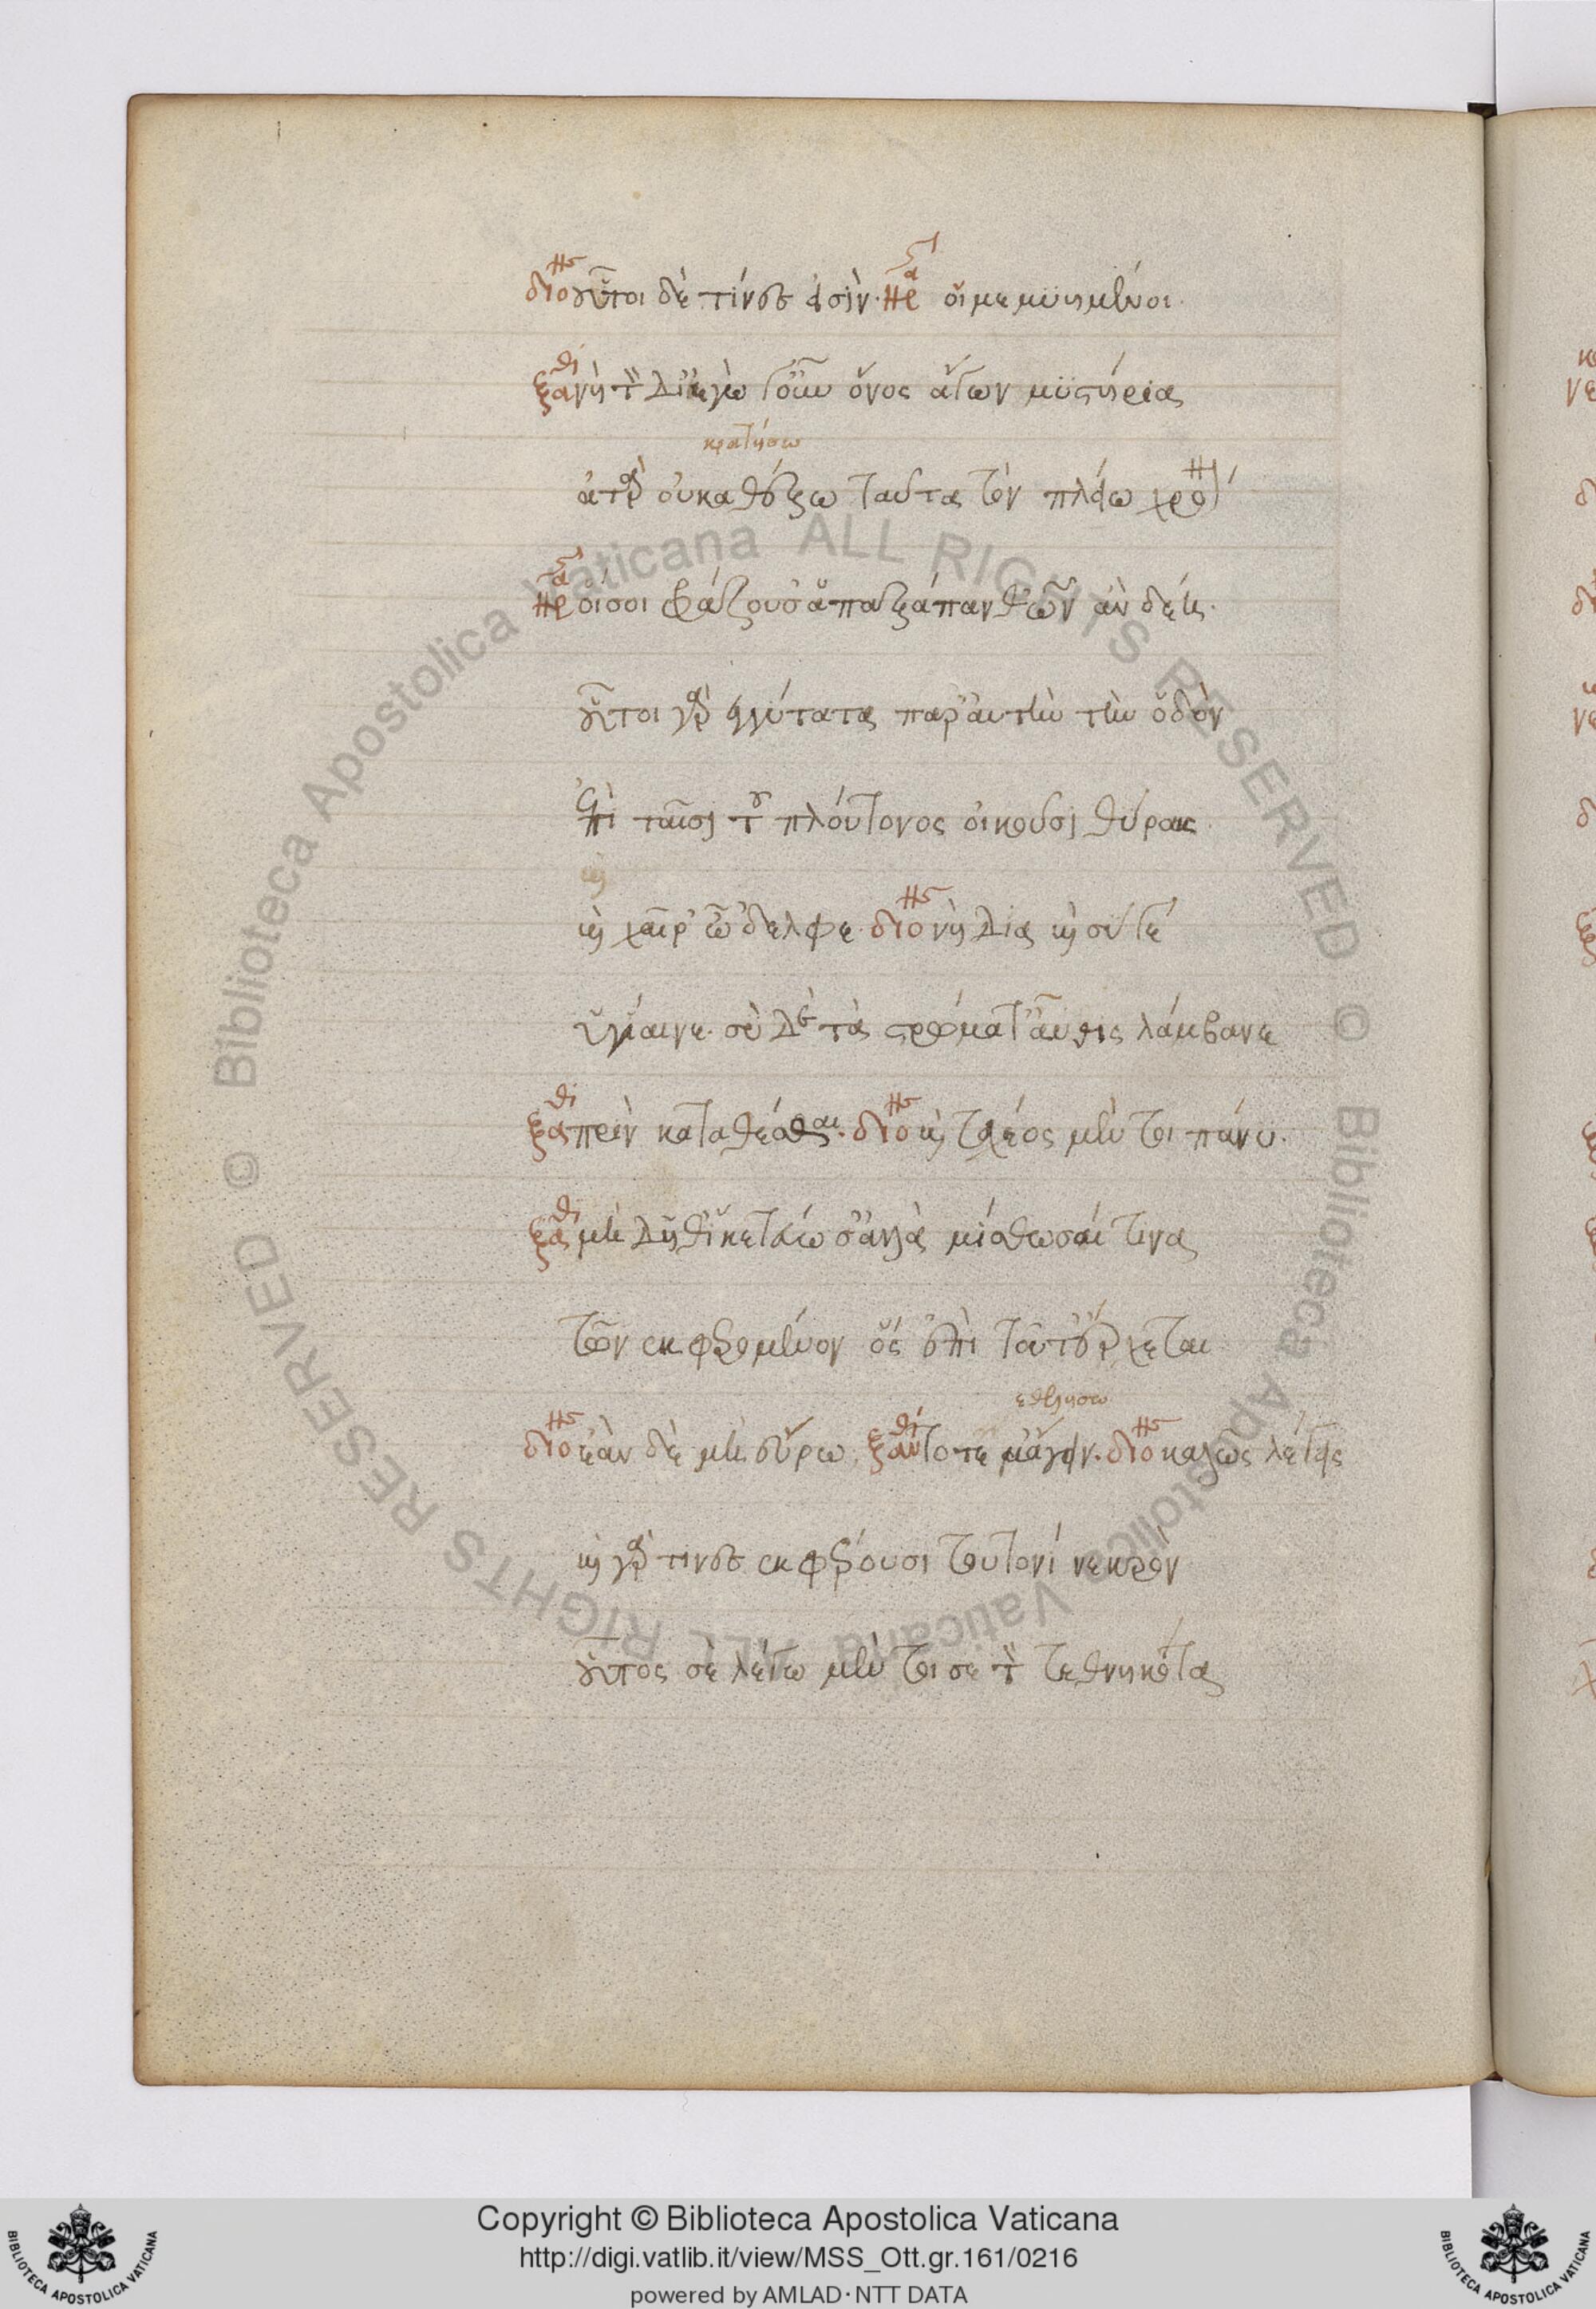 διο οὗτοι δὲ τίνες εἰσίν· ηρ οἱ μεμυημένοι·
ξαν νὴ τὸν Δί' ἐγὼ γοῦν ὄνος ἄγων μυστήρια
κρατήσω
ἀτὰρ οὐ καθέξω ταῦτα τὸν πλείω χρό
ηρ οἵ σοι φράσουσ' ἁπαξάπανθ' ὧν ἂν δέῃ·
οὗτοι γὰρ ἐγγύτατα παρ' αὐτὴν τὴν ὁδὸν
ἐπὶ ταῖσι τοῦ πλούτονος οἰκοῦσι θύραις
καὶ χαῖρ' ὦ 'δελφε· διο νὴ Δία καὶ σύ γε
ὑγίαινε· σὺ δὲ τὰ στρώματ' αὖθις λάμβανε
ξαν πρὶν καταθέσθαι· διο καὶ ταχέος μέν τοι πάνυ·
ξαν μὴ δῆθ' ἱκετεύω σ' ἀλλὰ μίσθωσαί τινα
τῶν ἐκφερομένον ὅς ἐπὶ ταῦτ' ἔρχεται
ἐθελήσω
διο ἐὰν δὲ μὴ εὕρω. ξαν τότε μ' ἄγειν. διο καλῶς λέγεις
καὶ γὰρ τινες ἐκφέρουσι τουτονί νεκρόν
οὗτος σὲ λέγω μέν τοι σε τὸν τεθνηκότα
© Biblioteca Apostolica Vaticana ALL RIGHTS RESERVED © Biblioteca Apostolica Vaticana ALL RIGHTS RESERVED
Copyright © Biblioteca Apostolica Vaticana
http://digi.vatlib.it/view/MSS_Ott.gr.161/0216
powered by AMLAD·NTT DATA
BIBLIOTECA APOSTOLICA VATICANA
BIBLIOTECA APOSTOLICA VATICANA